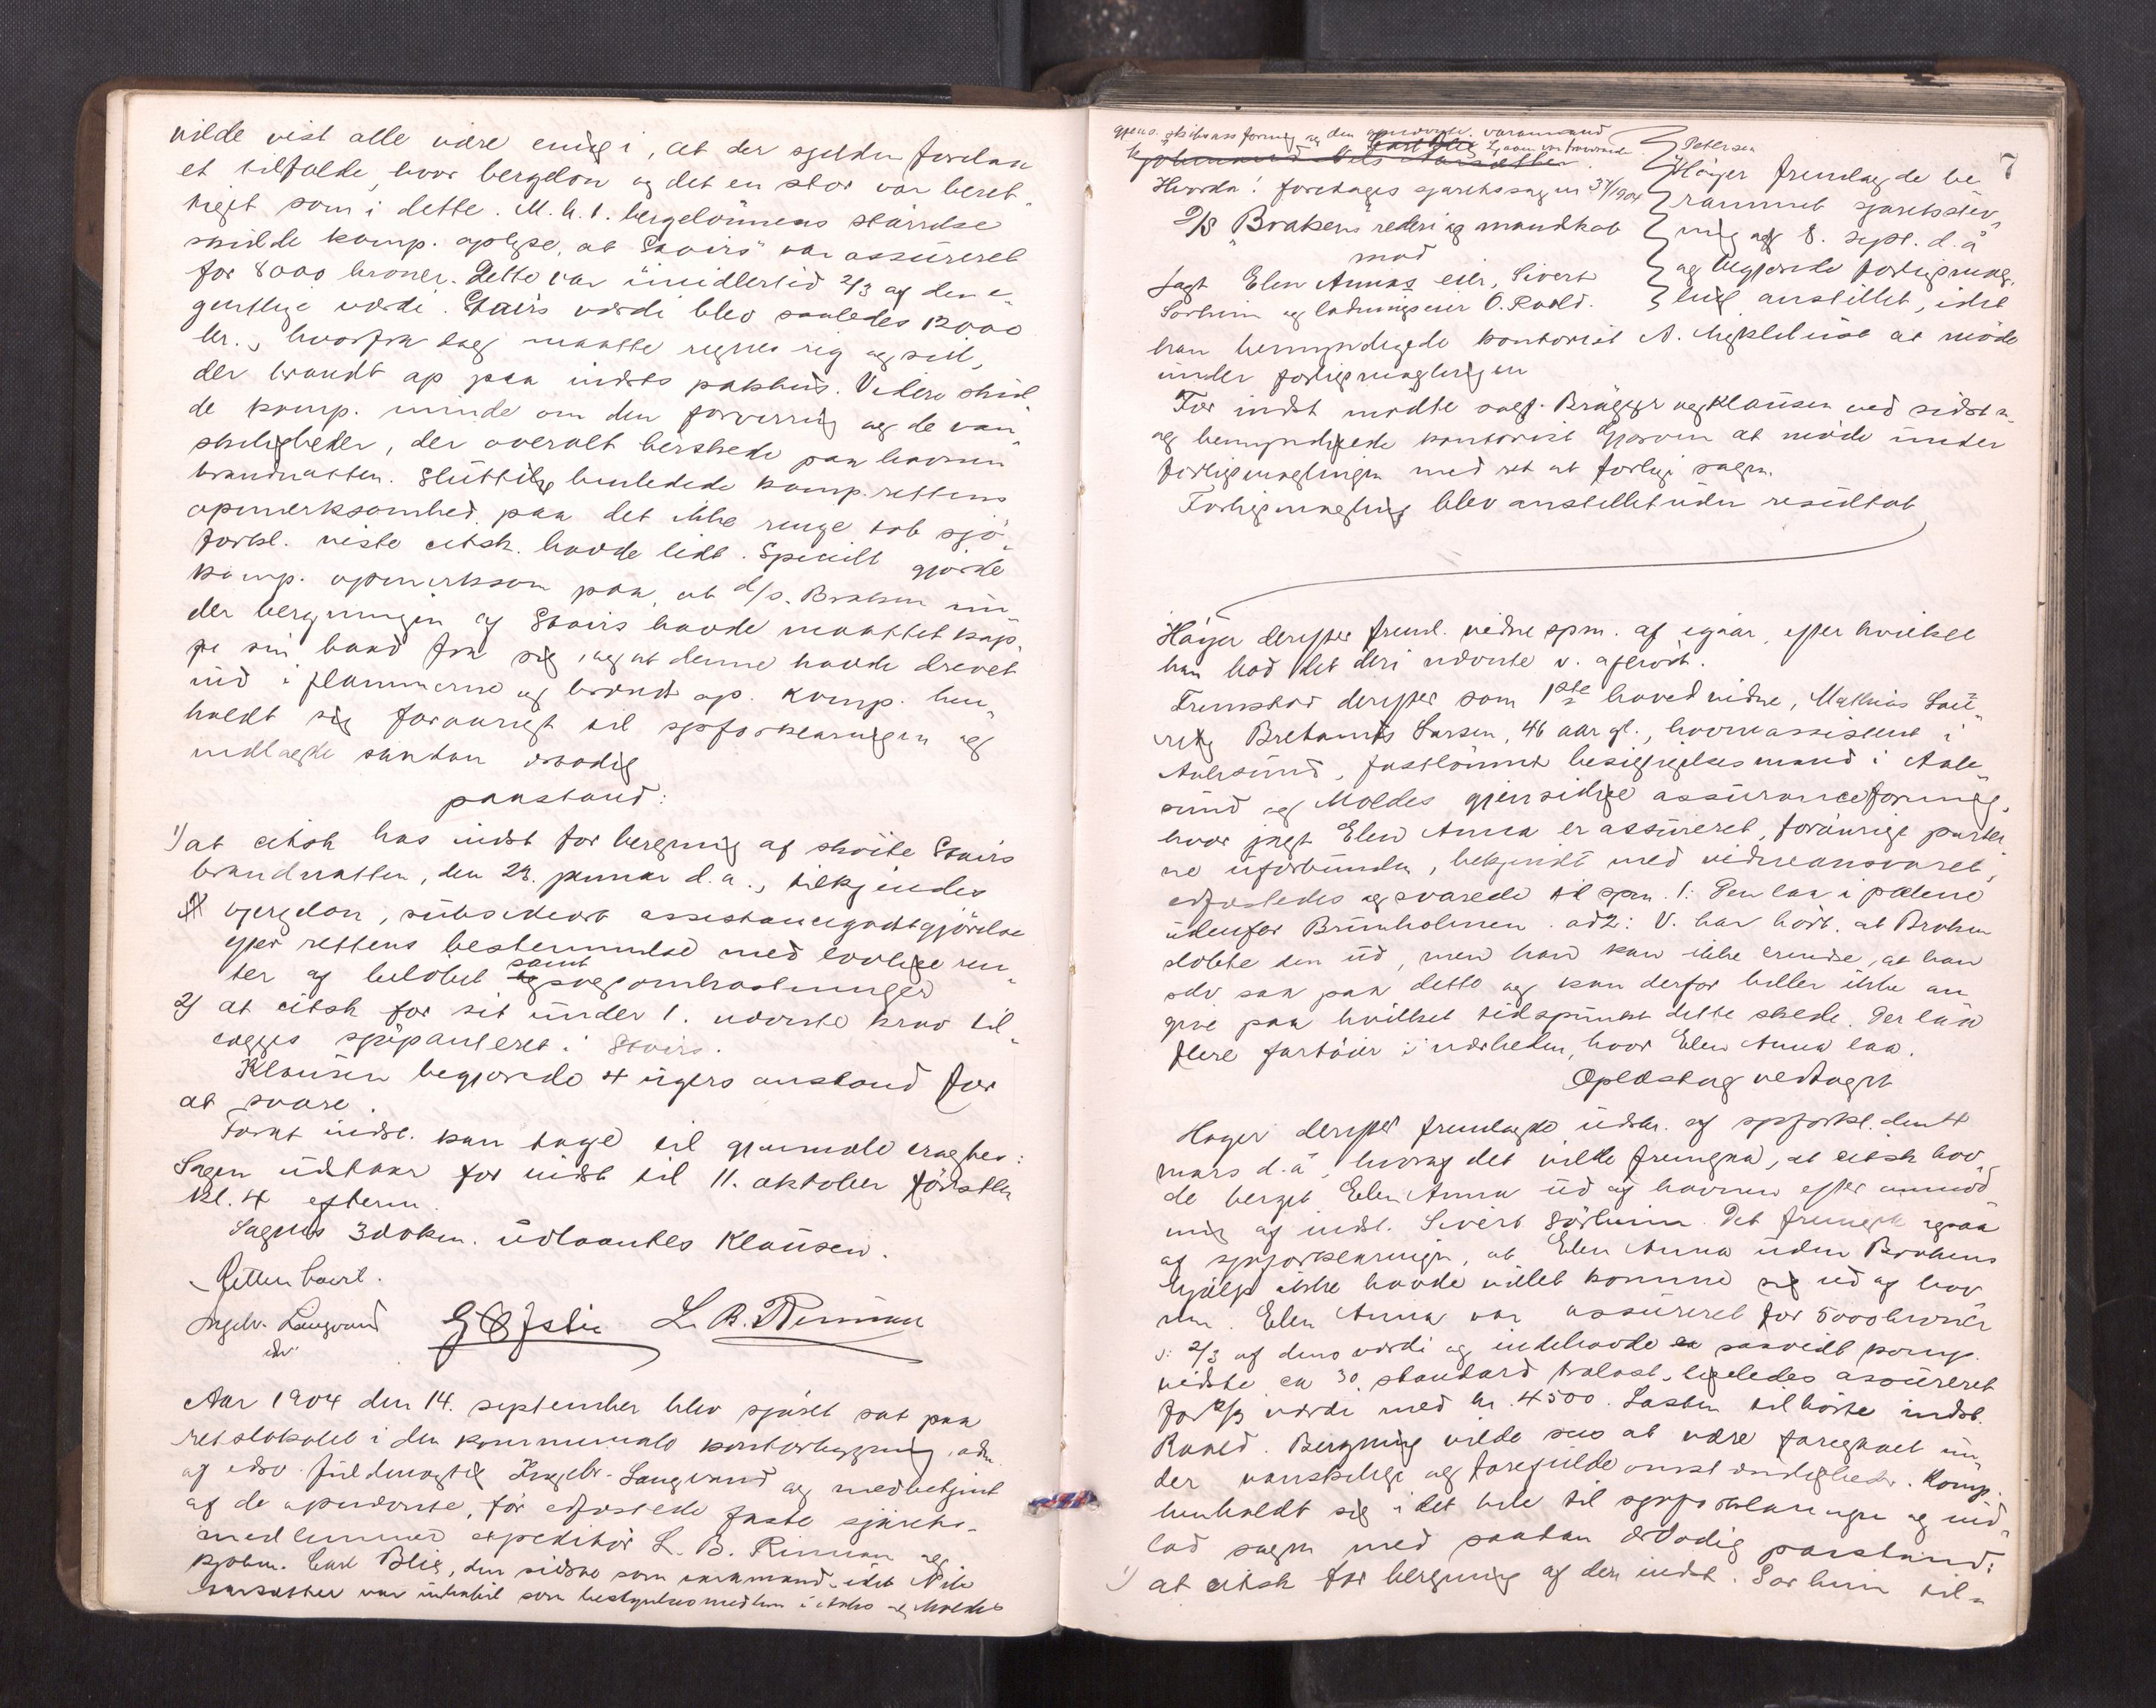 vilde vist alle være enig i, at der sjelden forelaa
et tilfælde, hvor bergeløn og det en stor var beret-
tiget som i dette. M. h. t. bergelønnens størrelse
skulde komp. oplyse, at "Stairs" var assureret
for 8000 kroner. Dette var imidlertid 2/3 af den e-
gentlige værdi. Stairs værdi blev saaledes 12000
kr., hvorfra dog maatte regnes rig og seil,
der brændt op paa indsts pakhus. Videre skul-
de komp. minde om den forvirring og de van-
skeligheder, der overalt herskede paa havnen
brandnatten. Sluttelig henledede komp. rettens
opmerksomhed paa det ikke ringe tab sjö-
forkl. viste citsk. havde lidt. Specielt gjorde
komp. opmerksom paa, at d/s. Braken un-
der bergningen af Stairs havde maattet kap-
pe sin baad fra sig, og at denne havde drevet
ind i flammerne og brændt op. Komp. hen-
holdt sig forøvrigt til sjøforklaringen og
nedlagde saadan ærbødig
paastand:
1) at citsk hos indst for bergning af skøite Stairs
brandnatten, den 23. januar d. a., tilkjendes
bergeløn, subsidiært assistancegodtgjørelse
efter rettens bestemmelse med lovlige ren-
ter af beløbet samt sagsomkostninger
2) at citsk for sit under 1. nævnte krav til-
lægges sjøpanteret i Stairs.
Klausen begjærede 4 ugers anstand for
at svare.
Sagen udsættes for indst til 11. oktober førstk.
kl. 4 efterm.
Sagens 3 dokm. udlaantes Klausen.
Retten hævet.
Ingebr. Langvand
L. B. Rinnan
Aar 1904 den 14. september blev sjøret sat paa
retslokalet i den kommunale kontorbygning, adm.
af edsv. fuldmægtig Ingebr. Langvand og medbetjent
af de opnævnte, før edfæstede faste sjørets-
medlemmer expeditør L. B. Rinnan og
kjøbm. Carl Blis, den sidste som varamand, idet Nils
Aarsæther var inhabil som bestyrelsesmedlem i Aales. og Moldes
gjens. skibsass. forening og den opnævnte varamand
7
Hvorda! foretages sjøretssagen 37/1904
D/S "Braken"s rederi og mandskab
mod
Jagt Elen Annas eier, Sivert
Sørheim og ladningseier O. Roald.
Petersen
Høyer fremlagde be-
rammet sjøretsstev-
ning af 8. sept. d. a
og begjærede forligsmæg-
ling anstillet, idet
han bemyndigede kontorist A. Myklebust at møde
under forligsmæglingen
For indst mødte sagf. Brügger og Klausen ved sidstn.
og bemyndigede kontorist Gjørven at møde under
forligsmæglingen med ret at forlige sagen.
Forligsmægling blev anstillet uden resultat
Høyer derefter freml. vidne spm. af igaar, efter hvilket
han bad det deri nævnte v. afhørt.
Fremstod derefter som 1ste hovedvidne, Mathias Lau-
ritz Bretanus Larsen, 46 aar gl., havneassistent i
Aalesund, fastlønnet besigtigelsesmand i Aale-
sund og Moldes gjensidige assuranceforening,
hvor jagt Elen Anna er assureret, forøvrigt parter-
ne uforbunden, bekjendt med vidneansvaret,
edfæstedes og svarede til spm. 1: Den laa i pælene
udenfor Brunholmen. ad 2: V. har hørt, at Braken
slæbte den ud, men han kan ikke erindre, at han
selv saa paa dette og kan derfor heller ikke an-
give paa hvilket tidspunkt dette skede. Der laa
flere fartøier i nærheden, hvor Elen Anna laa.
Oplæst og vedtaget
Høyer derefter fremlagde udskr. af sjøforkl. den 4
mars d. a., hvoraf det vilde fremgaa, at citsk hav-
de berget Elen Anna ud af havnen efter anmod-
ning af indst. Sivert Sørheim. Det fremgik ogsaa
af sjøforklaringen, at Elen Anna uden Brakens
hjælp ikke havde villet komme sig ud af hav-
nen. Elen Anna var assureret for 5000 kroner
ɔ: 2/3 af dens værdi og indehavde saavidt komp.
vidste ca 30 standard trælast, ligeledes assureret
for 2/3 værdi med kr. 4500. Lasten tilhørte indst.
Roald. Bergning vilde sees at være foregaaet un-
der vanskelige og farefulde omstændigheder. Komp.
henholdt sig i det hele til sjøforklaringen og ind-
lod sagen med saadan ærbødig paastand:
1) at citsk for bergning af den indst. Sørheim til-